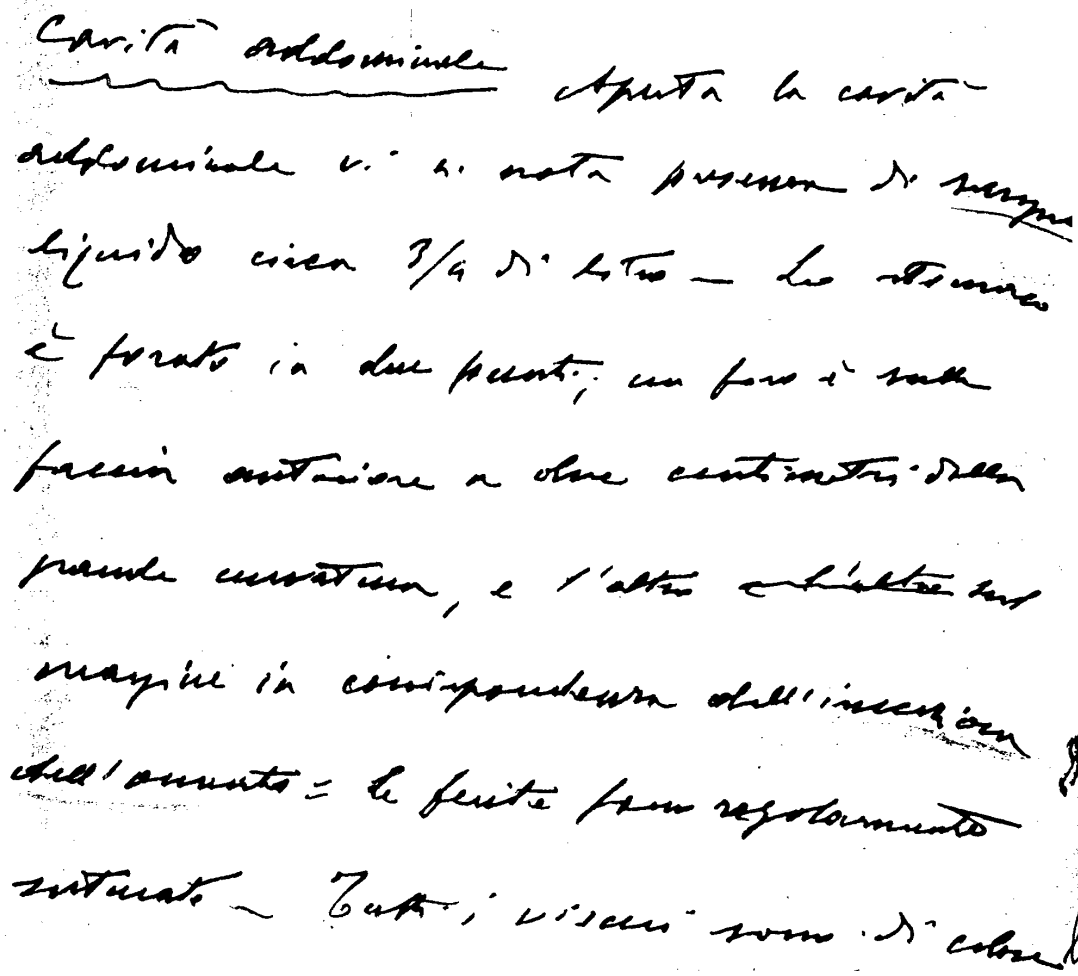 Cavità addominale Aperta la cavità
addominale vi si nota presenza di sangue
liquido circa 3/4 di litro — Lo stomaco
è forato in due punti; un foro è sulla
faccia anteriore a due centimetri dalla
grande curvatura, e l'altro sul
margine in corrispondenza dell'inserzione
dell'omento = le ferite sono regolarmente
suturate — Tutti i visceri sono di colore